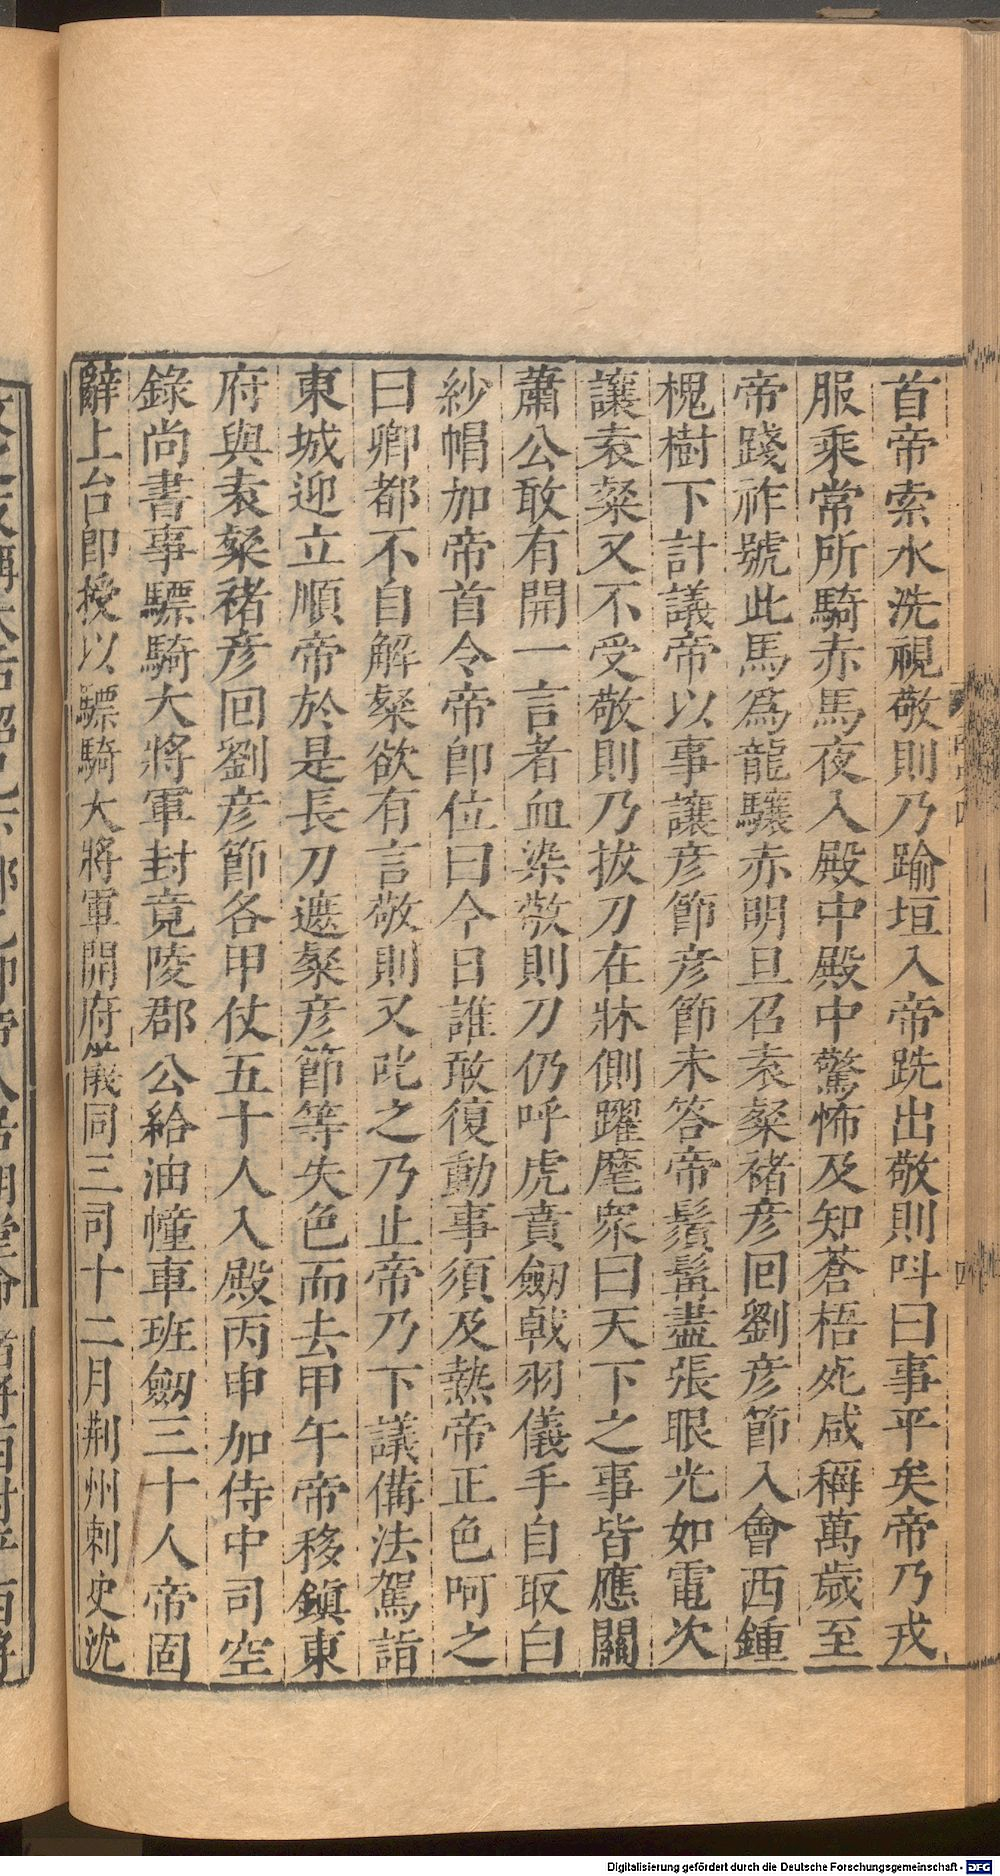 首帝索水洗視敬則乃踰垣入帝跣出敬則呌曰事平矣帝乃戎
服乘常所騎赤馬夜入殿中殿中驚怖及知蒼梧死咸稱萬歲至
帝踐祚號此馬爲龍驤赤明旦召袁粲褚彦回劉彦節入會西鍾
槐樹下計議帝以事讓彦節彦節未答帝鬚髯盡張眼光如電次
讓袁粲又不受敬則乃拔刀在牀側躍麾衆曰天下之事皆應關
蕭公敢有開一言者血染敬則刀仍呼虎賁劒戟羽儀手自取白
紗帽加帝首令帝即位曰今日誰敢復動事須及熱帝正色呵之
曰卿都不自解粲欲有言敬則又叱之乃止帝乃下議備法駕詣
東城迎立順帝於是長刀遮粲彦節等失色而去甲午帝移鎭東
府與袁粲褚彦回劉彦節各甲仗五十人入殿丙申加侍中司空
錄尚書事驃騎大將軍封竟陵郡公給油幢車班劒三十人帝固
辭上台即授以驃騎大將軍開府儀同三司十二月荆州刺史沈
四
Digitalisierung gefördert durch die Deutsche Forschungsgemeinschaft - DFG